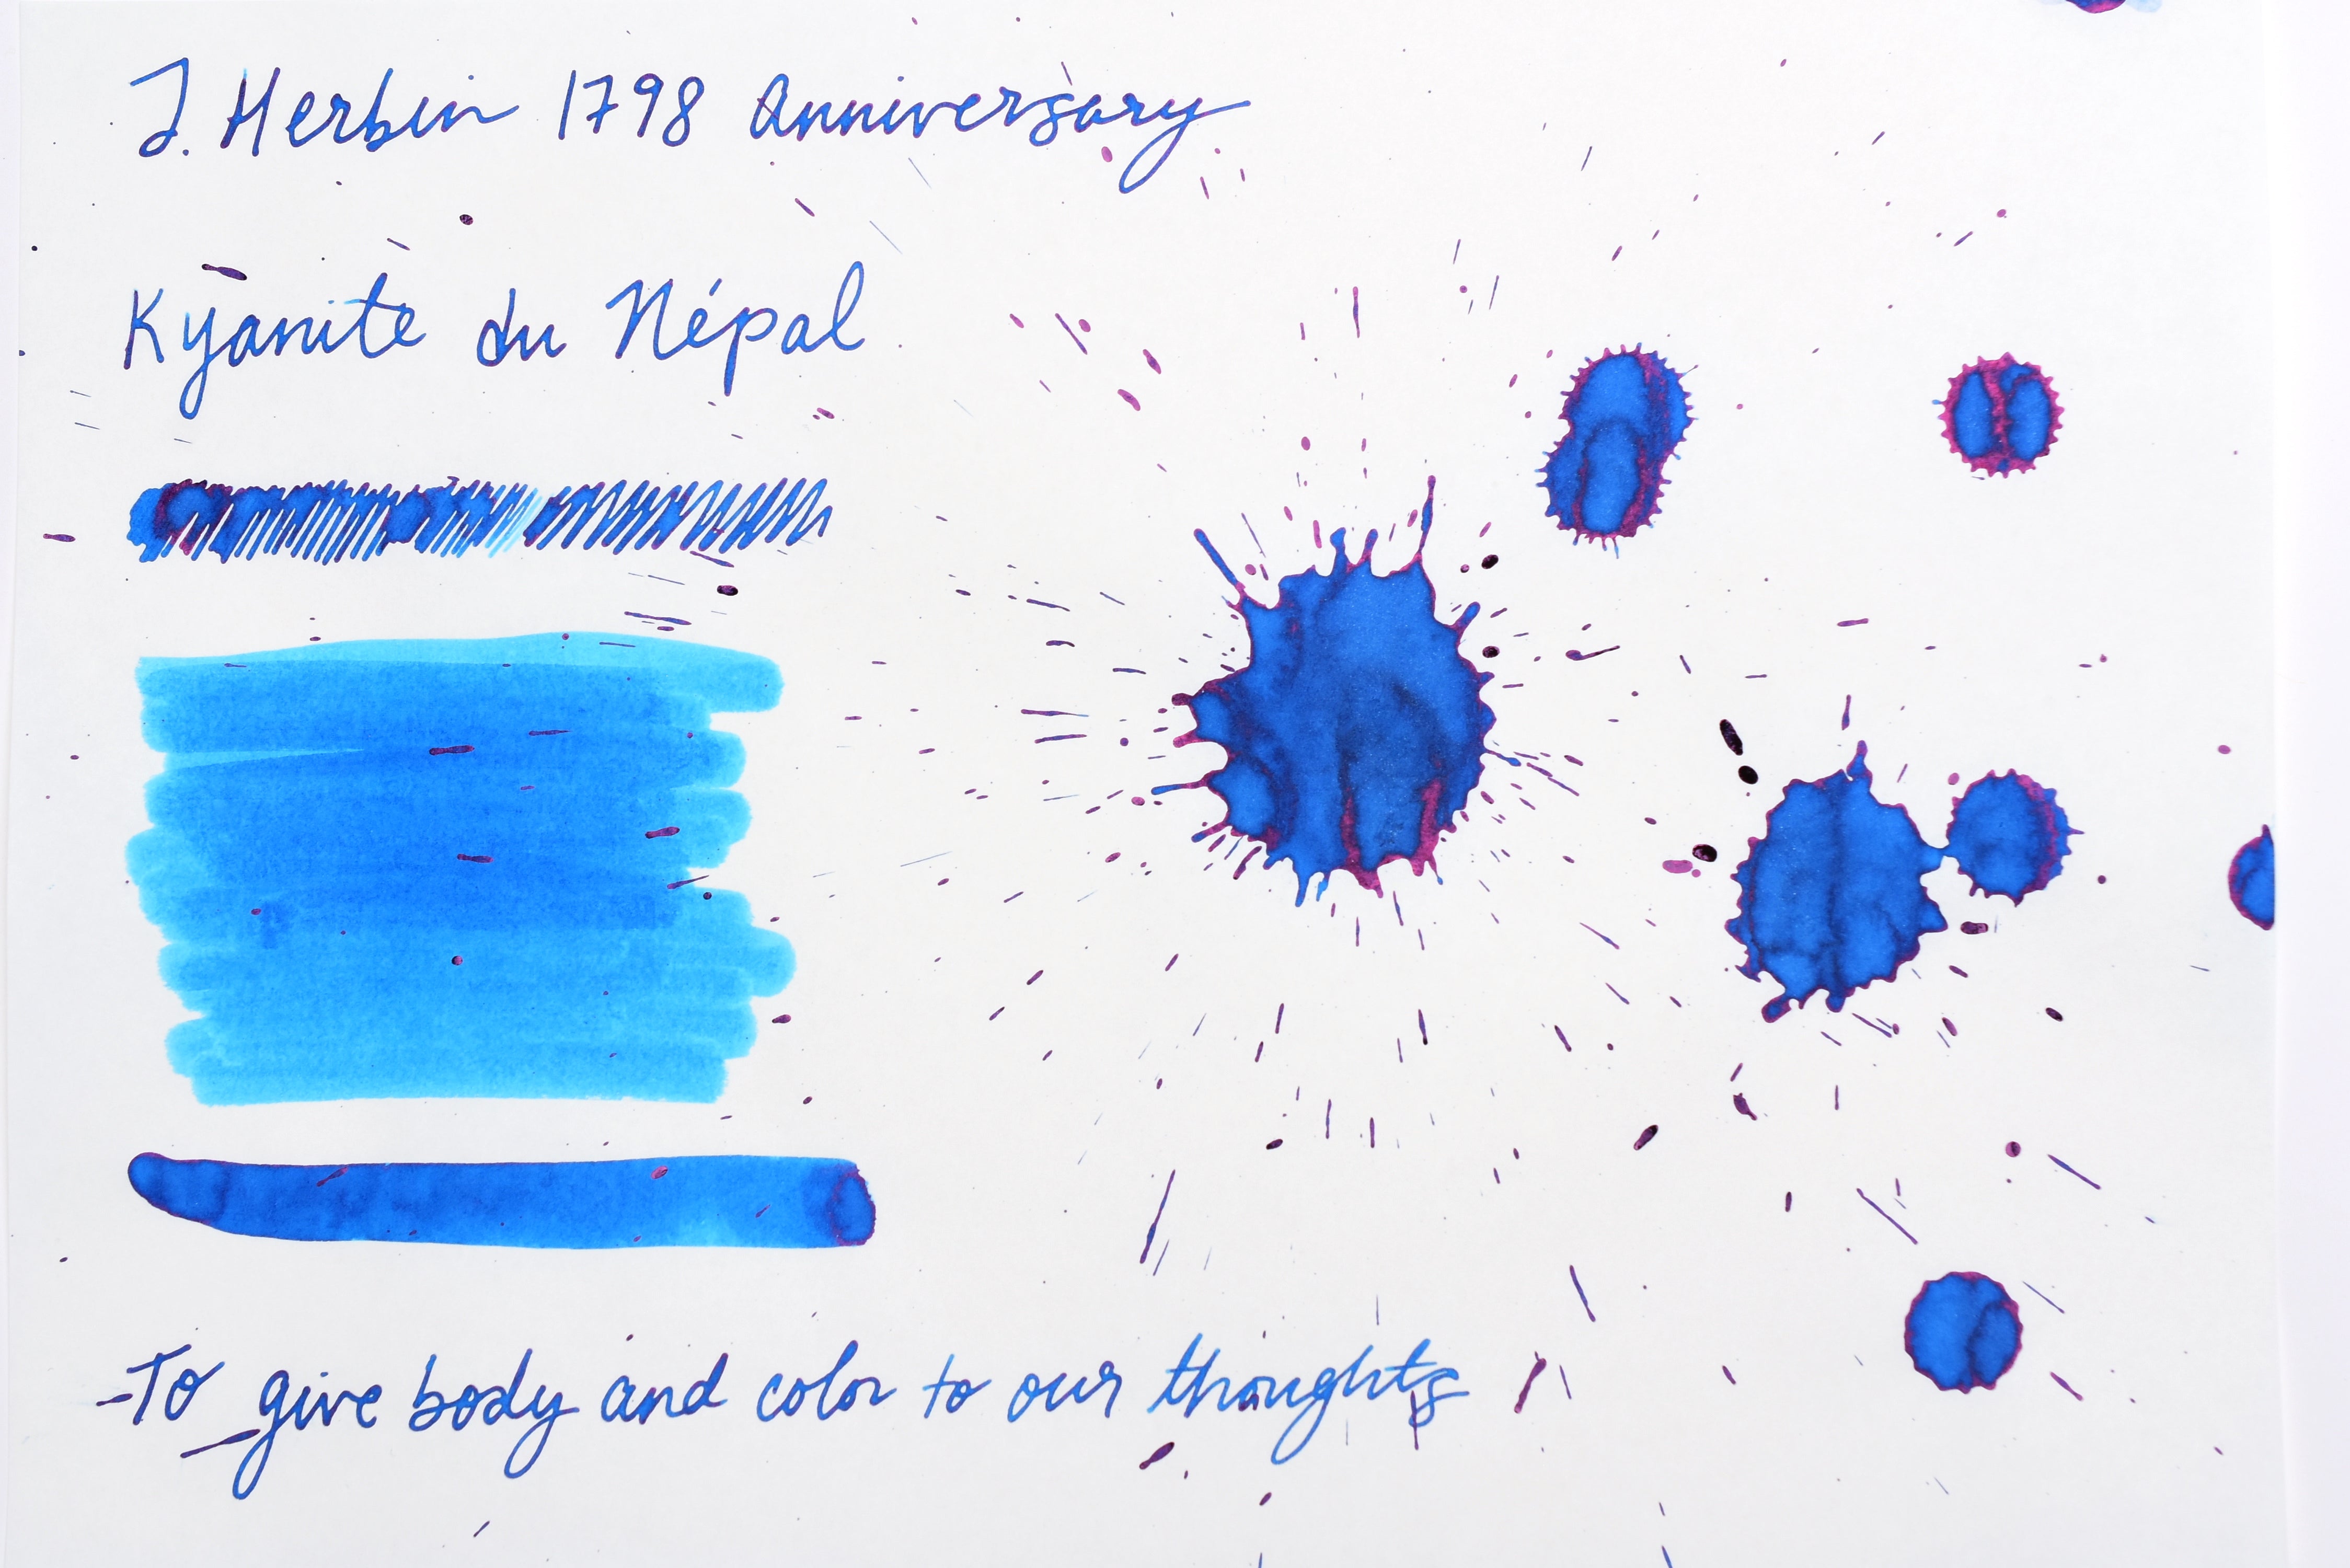 J. Herbin 1798 Anniversary
Kyanite du Népal
To give body and color to our thoughts